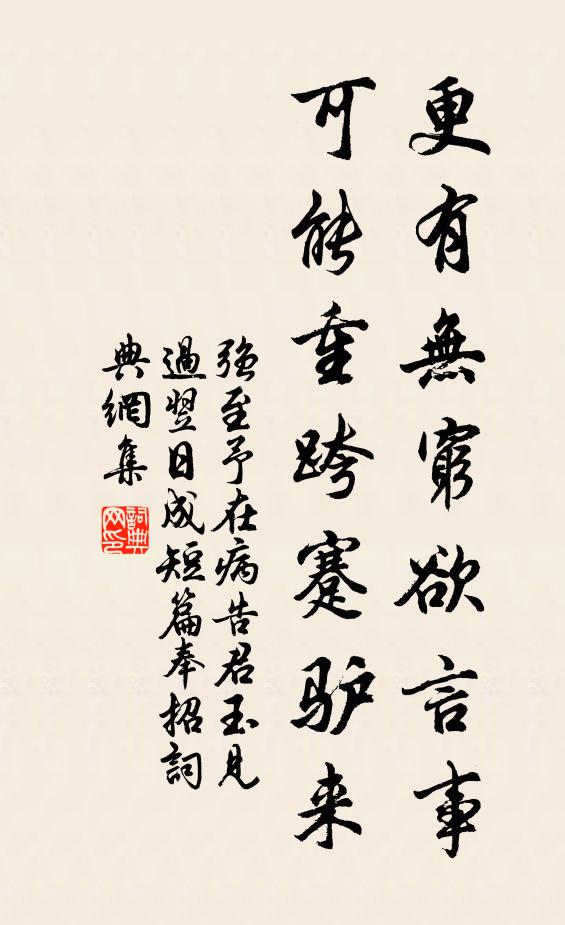 更有無窮欲言事
可能重跨蹇驴来
强至予在病告君玉見
過翌日成短篇奉招詞
典網集
詞典网印